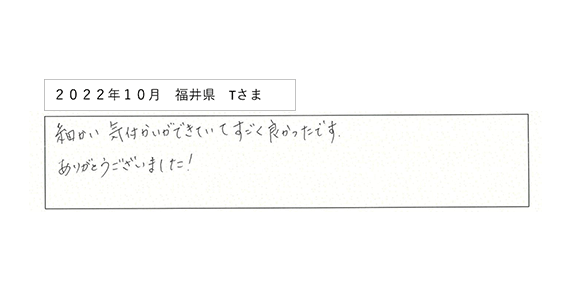 2022年10月　福井県　Tさま
細かい気付かいができていてすごく良かったです.
ありがとうございました!